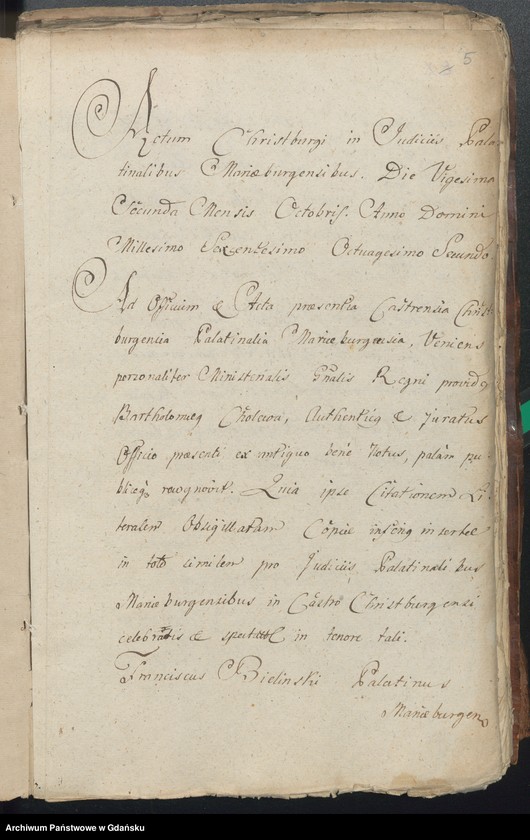 5
Actum Christburgi in Judiciis Pala-
tinalibus Mariæburgensibus. Die Vigesima
Secunda Mensis Octobris. Anno Domini
Millesimo Sexentesimo Octuagesimo Secundo
Ad Officium & Acta præsentia Castrensia Christ-
burgensia Palatinalia Mariæburgensia, Veniens
personaliter Ministerialis Gnalis Regni providg
Bartholomeg Cholewa, Authenticg & Juratus
Officio præsenti ex antiquo bene Notus, palam pu-
blicego recognovit. Quia ipse Citationem Li-
teralem Obsigillatam Copiæ insertæ
in toto similem pro Judiciis Palatinalibus
Mariæburgensibus in Castro Christburgensi
celebratis & in tenore tali.
Franciscus Bielinski Palatinus
Mariæburgen
Archiwum Państwowe w Gdańsku